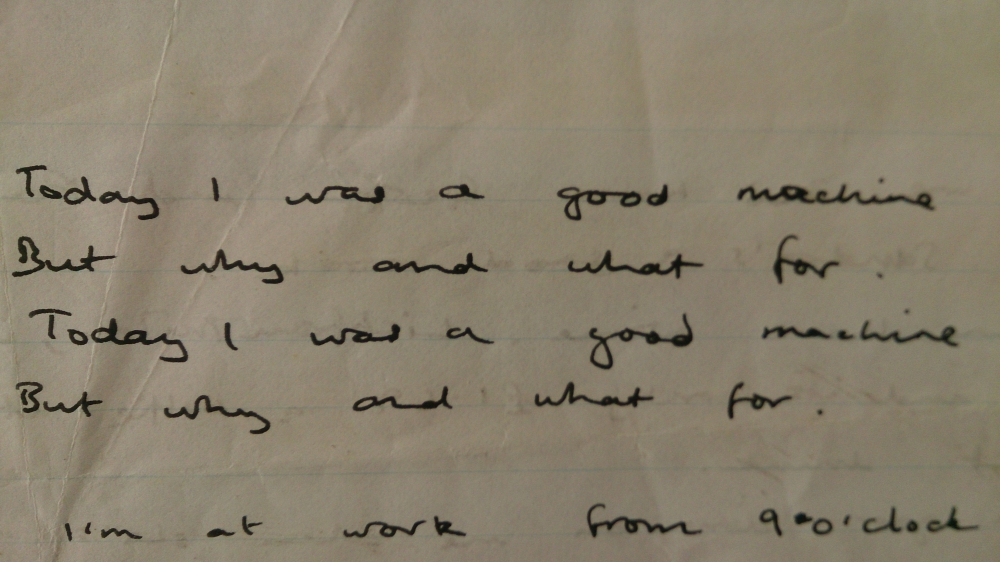 Today I was a good machine
But why and what for.
Today I was a good machine
But why and what for.
I'm at work from 9 o'clock